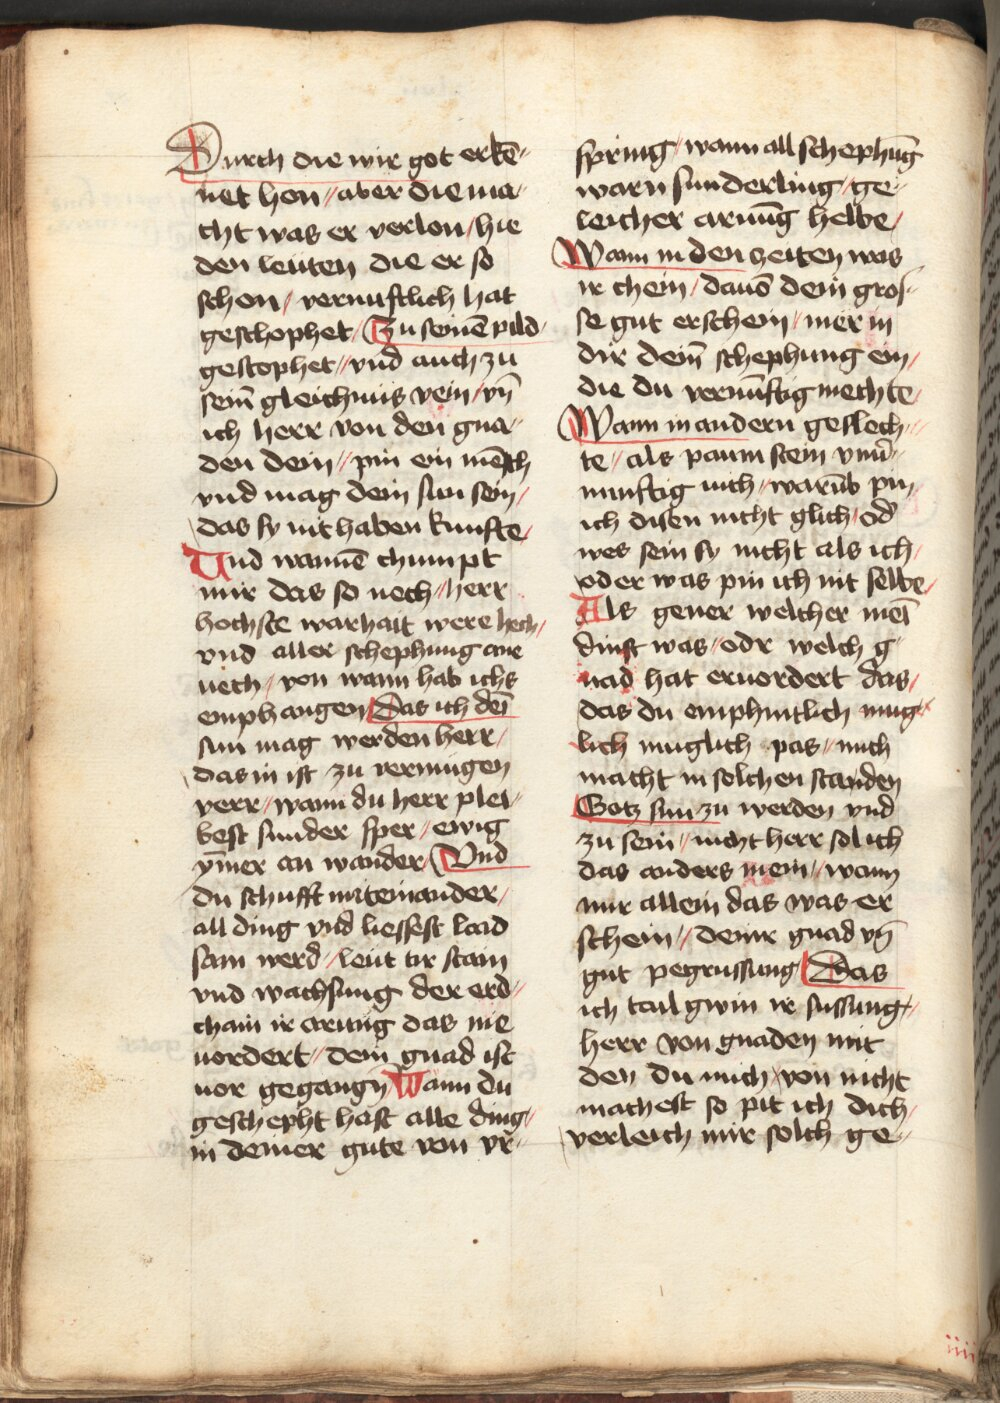 Durch die wir got erkē⸗
net hon / aber die ma⸗
cht was er verlon / hie
den leuten die er so
schon / vernuftlich hat
geschophet / Zu seinē pild
gestophet / vnd auch zu
seim̄ gleichnus vein / vn̄
ich herr von den gna⸗
den dein / pin ein mēsch
vnd mag dein sun sein /
das sy nit haben kunfte /
Und wannē chumpt
mir das so nech / herr
hochste warhait were hech /
vnd aller schephung ane
nech / von wann hab ichs
emphangen / Das ich deī
sun mag werden herr /
das in ist zu vermugen
verr / wann du herr plei⸗
best sunder sper / ewig
ym̄er an wander / Und
du schufft miteinander /
all ding vnd liessest laid
sam werd / leut tir stain
vnd wachsung der erd /
chain ir arnūg das nie
uordert / dein gnad ist
uor gegangn̄ Wann du
geschepht hast alle ding /
in deiner gute von vr⸗
spring / wann all schephūg
warn sunderling / ge⸗
leicher arnūg helbe /
Wann in den zeiten was
ir chein / dauō dein gros⸗
se gut erschein / mer in
dir dein̄ schephung ein /
die du vernūftig mechte /
Wann in andern geslech⸗
te / als paum stein vnu̇⸗
nunftig uich / warūb pin
ich disen nicht glich / od̄
wes sein sy nicht als ich /
oder was pin ich nit selbe /
Als gener welcher meī
dinst was / odr welch g
nad hat eruordert das /
das du emphintlich mug⸗
lich muglich pas / mich
macht in solchen standen
Gotz sun zu werden vnd
zu sein / nicht herr sol ich
das anders mein / wann
nur allein das was er
schein / deinr gnad vn̄
gut pegrussung / Das
ich tail gwin ir sussung /
herr von gnaden mit
den du mich von nicht
machest so pit ich dich /
verleich mir solch ge⸗